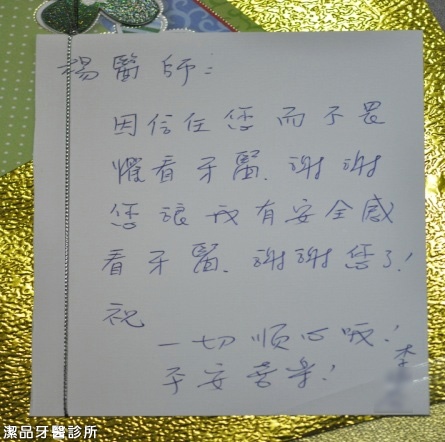 楊醫師:
因信任您而不畏
懼看牙醫.謝謝
您讓我有安全感
看牙醫.謝謝您了!
祝
一切順心哦!
平安喜樂!
李
潔品牙醫診所